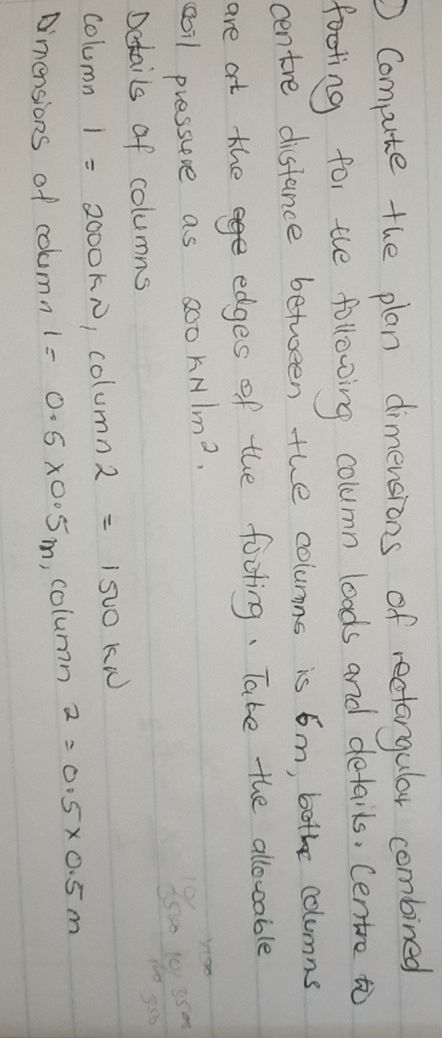 ) Compute the plan dimensions of rectangular combined
footing for the following column loads and details. Centre to
centre distance between the columns is 6m, both columns
are at the edges of the footing. Take the allowable
soil pressure as 200 KN/m².
Details of columns
Column 1 = 2000KN, column 2 = 1500 KN
Dimensions of column 1 = 0.5 x0.5m, column 2 = 0.5 x 0.5m